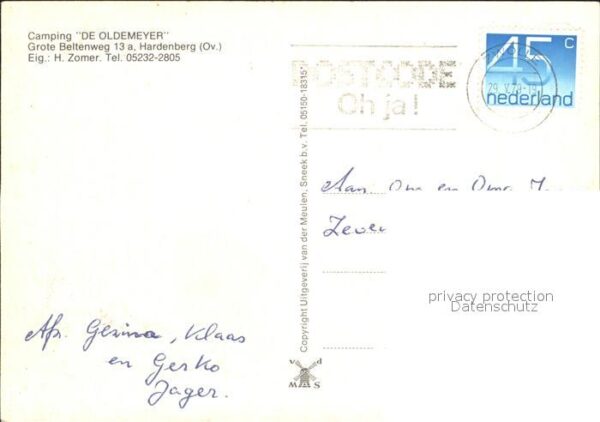 Camping "DE OLDEMEYER"
Grote Beltenweg 13 a, Hardenberg (Ov.)
Eig.: H. Zomer. Tel. 05232-2805
45 c
nederland
POSTCODE
Oh ja!
Copyright Uitgeverij van der Meulen, Sneek b.v. Tel. 05150-18315*
Aan Oma en Oma
privacy protection
Datenschutz
Afz. Gezina, Klaas
en Gerko
Jager.
v d
W S